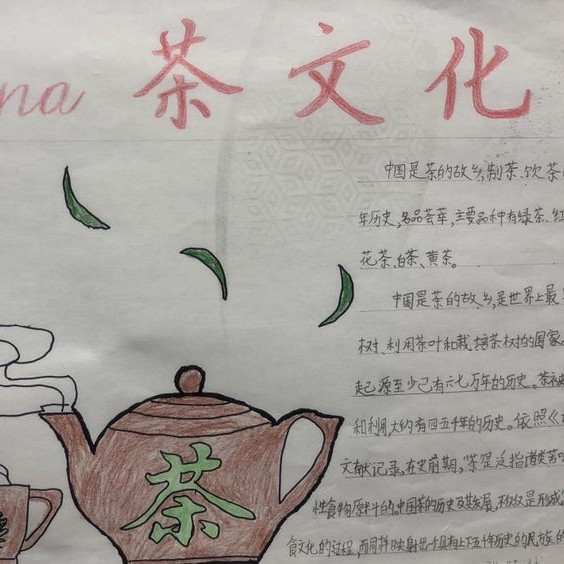 na 茶文化
中国是茶的故乡,制茶、饮茶
年历史,名品荟萃,主要品种有绿茶、红
花茶、白茶、黄茶。
中国是茶的故、乡,是世界上最
树、利用茶叶和栽、培茶树的国家
起源至少已有六七万年的历史。茶
和利用,大约有四五千年的历史。依照《
文献记录,在史前期,“茶”是泛指诸类苦
性食物原料的。中国茶的历史及其发展,不仅仅是形成
食文化的过程,而同样映射出一个具有上下五千历史的民族的
茶